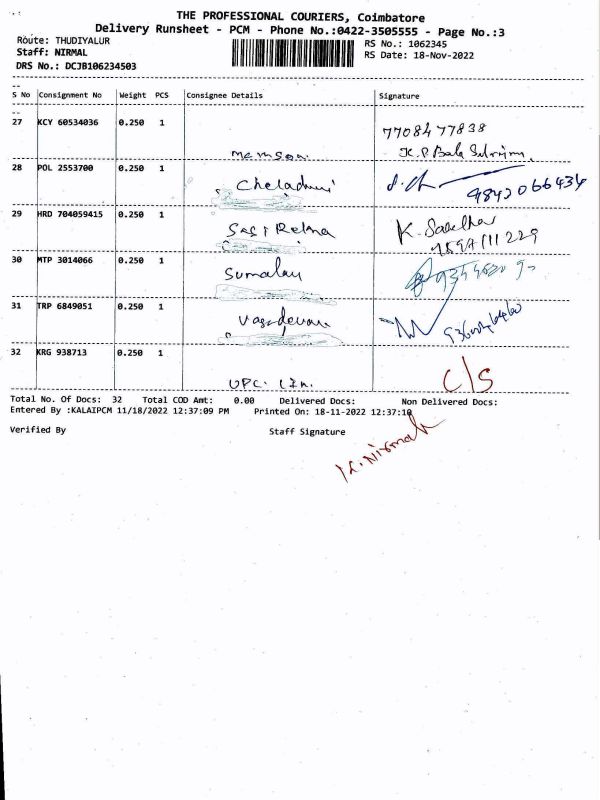 THE PROFESSIONAL COURIERS, Coimbatore
Delivery Runsheet - PCM - Phone No.:0422-3505555 - Page No.:3
Route: THUDIYALUR
RS No.: 1062345
Staff: NIRMAL
RS Date: 18-Nov-2022
DRS No.: DCJB106234503
S No Consignment No Weight PCS Consignee Details Signature
27 KCY 60534036 0.250 1
7708477838
28 POL 2553700 0.250 1
9842066434
29 HRD 704059415 0.250 1
30 MTP 3014066 0.250 1
Sumalau
31 TRP 6849051 0.250 1
Vasudevan
32 KRG 938713 0.250 1 C/S
UPC.
Total No. Of Docs: 32 Total COD Amt: 0.00 Delivered Docs: Non Delivered Docs:
Entered By :KALAIPCM 11/18/2022 12:37:09 PM Printed On: 18-11-2022 12:37:10
Verified By Staff Signature
K. Nirmal